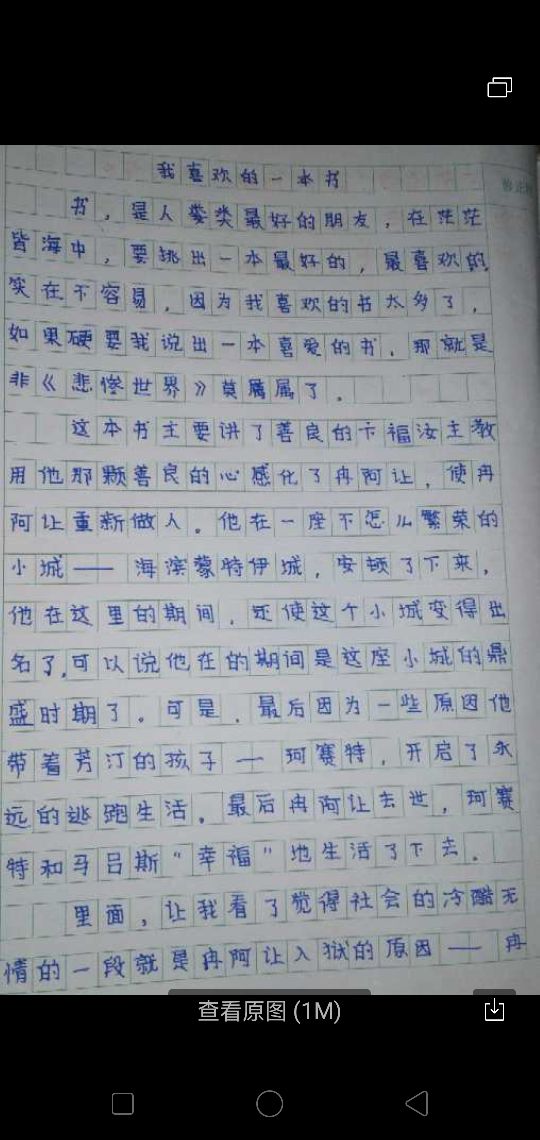 我喜欢的一本书
书，是人类类最好的朋友，在茫茫
皆海中，要挑出一本最好的，最喜欢的
实在不容易，因为我喜欢的书太多了，
如果硬要我说出一本喜爱的书，那就是
非《悲惨世界》莫属属了。
这本书主要讲了善良的卞福汝主教
用他那颗善良的心感化了冉阿让，使冉
阿让重新做人。他在一座不怎么繁荣的
小城——海滨蒙特伊城，安顿了下来，
他在这里的期间，还使这个小城变得出
名了，可以说他在的期间是这座小城的鼎
盛时期了。可是，最后因为一些原因他
带着芳汀的孩子—珂赛特，开启了永
远的逃跑生活。最后冉阿让去世，珂赛
特和马吕斯“幸福”地生活了下去。
里面，让我看了觉得社会的冷酷无
情的一段就是冉阿让入狱的原因——冉
查看原图 (1M)